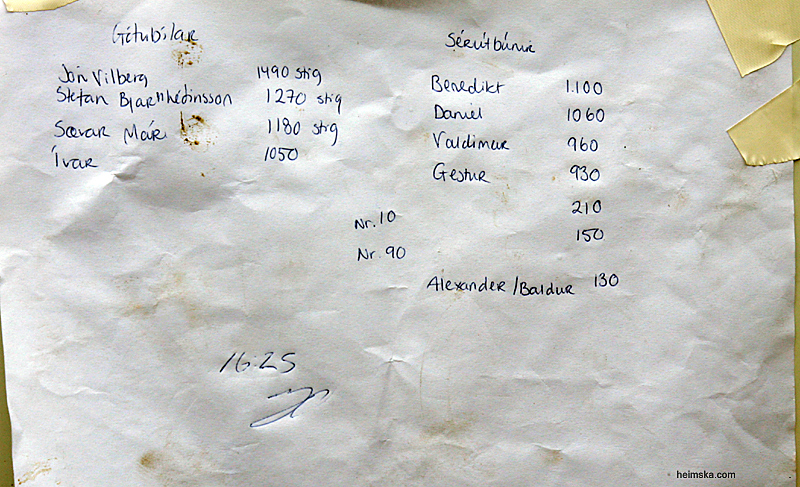 Götubílar
Jón Vilberg 1490 stig
Stefán Bjarnhéðinsson 1270 stig
Sævar Már 1180 stig
Ívar 1050
Sérútbúnir
Benedikt 1.100
Daníel 1060
Valdimar 960
Gestur 930
Nr. 10 210
Nr. 90 150
Alexander/Baldur 130
16:25
heimska.com